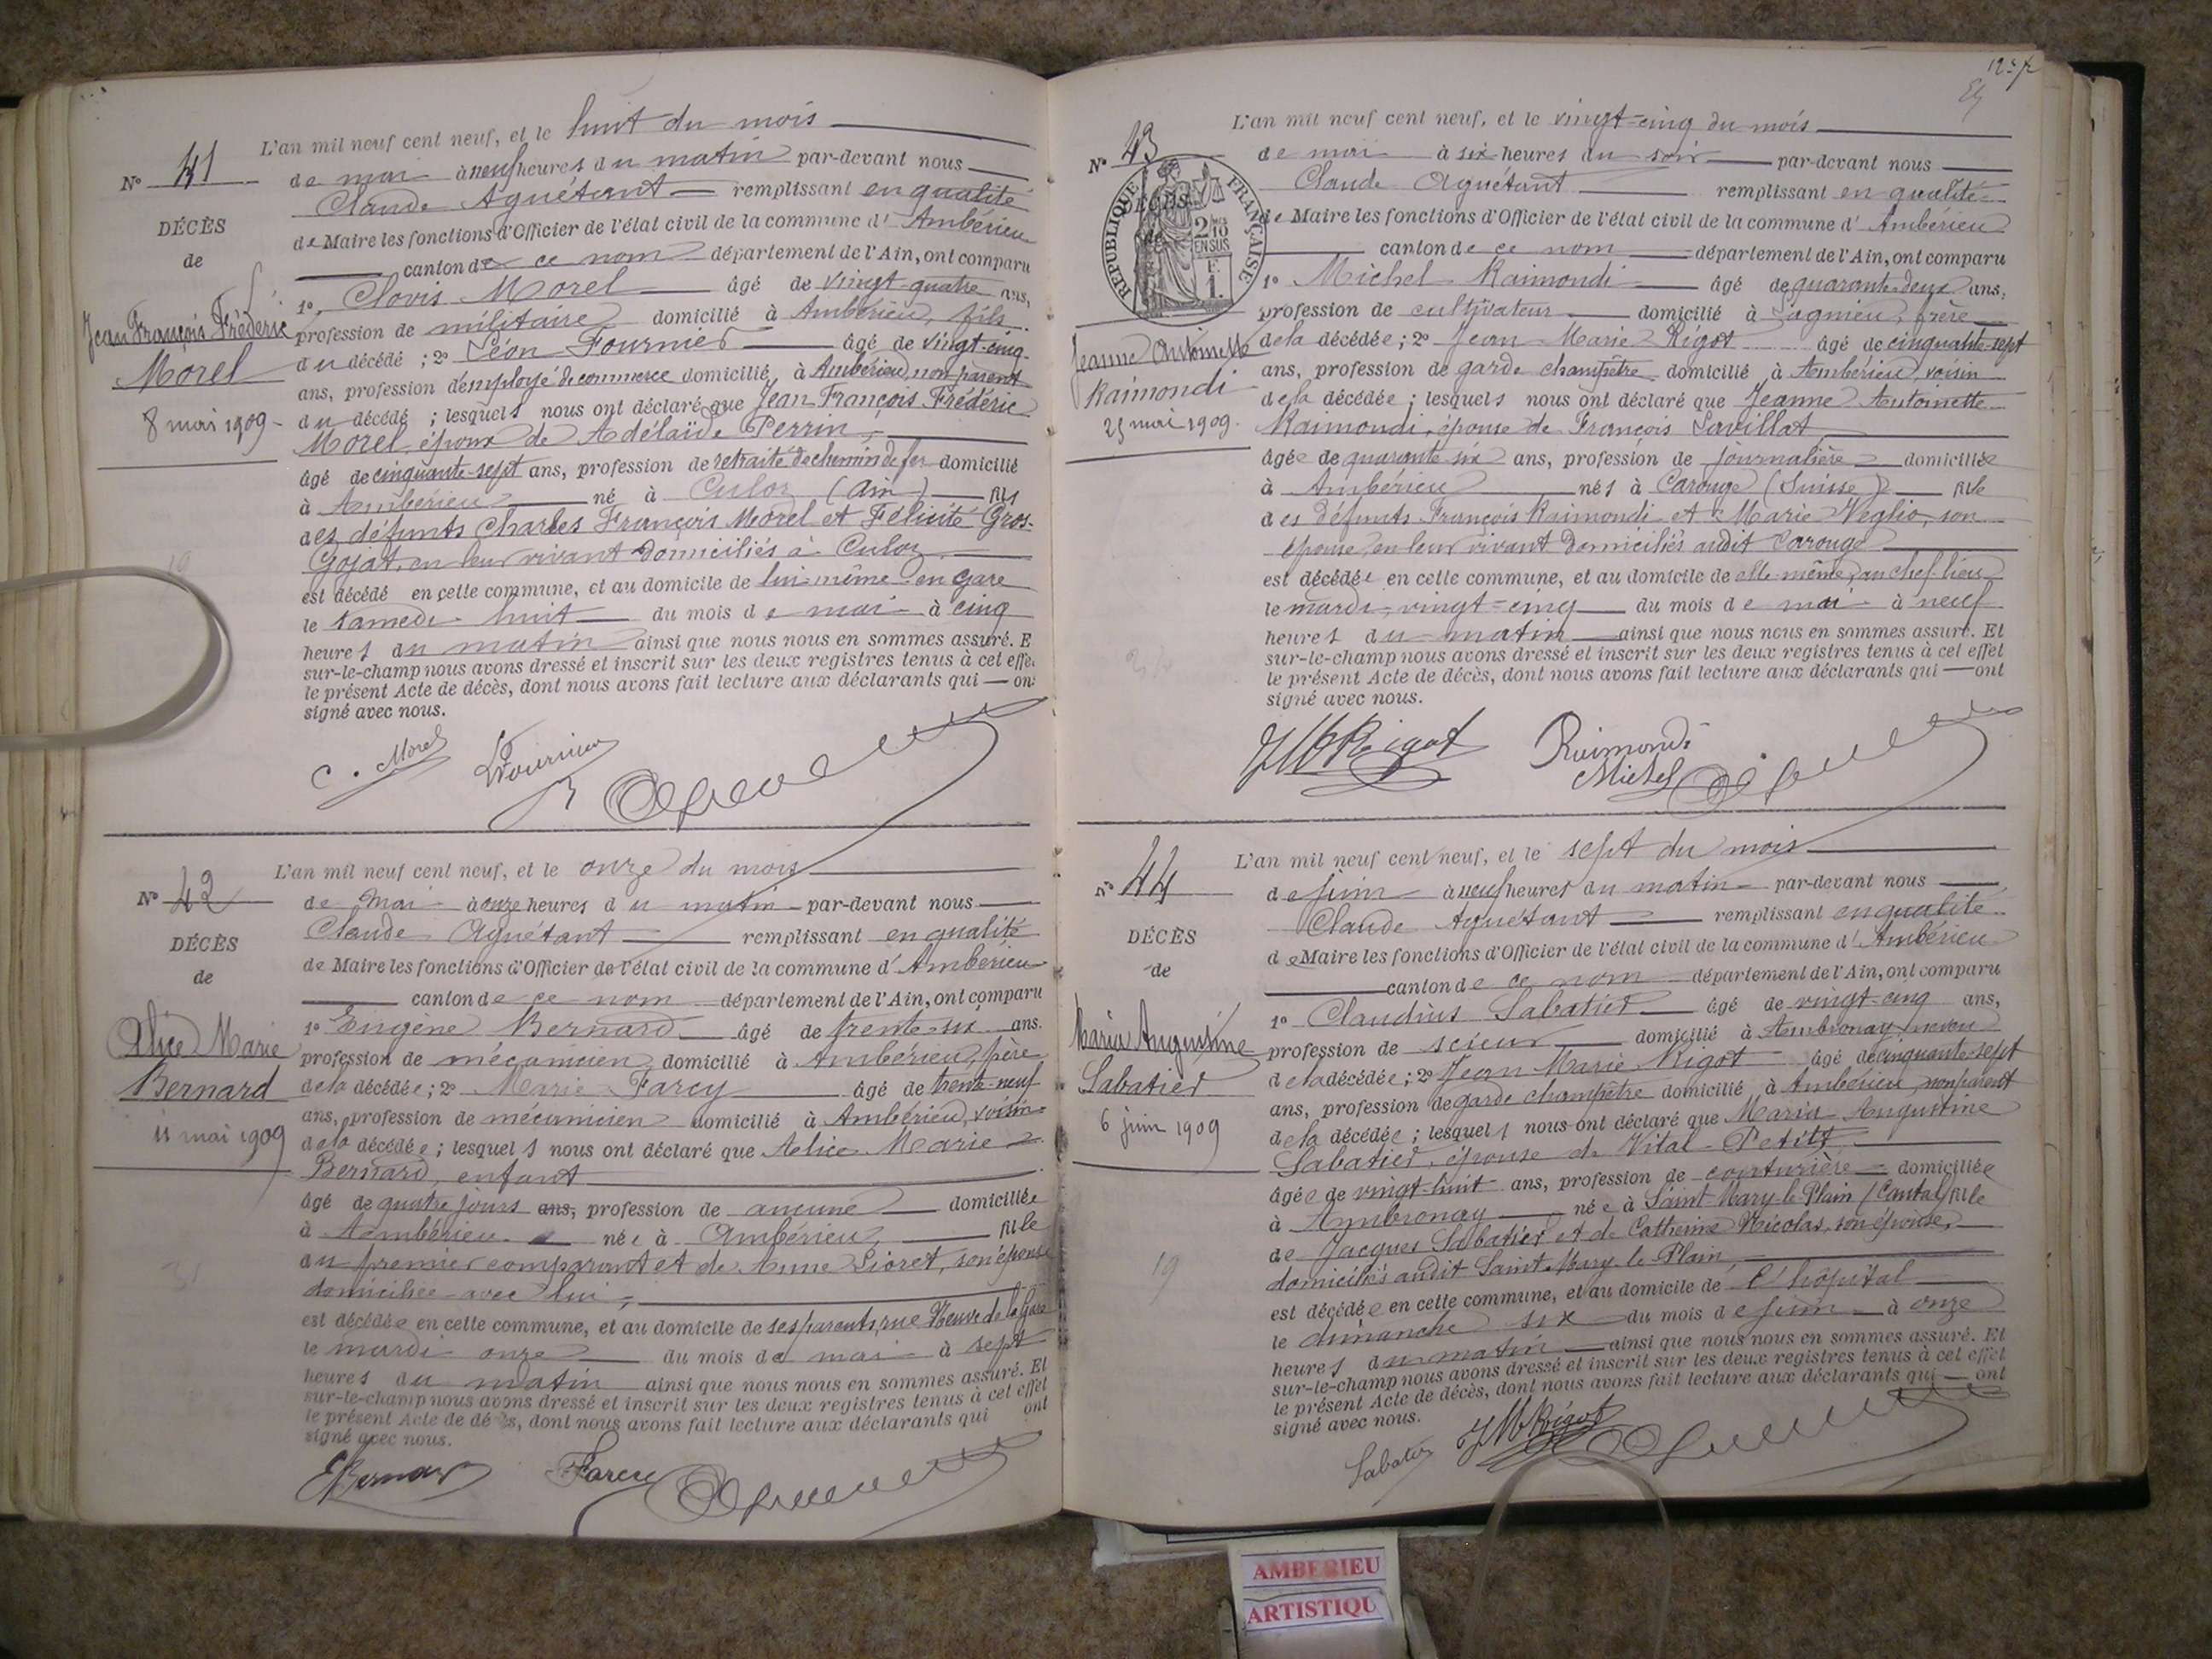 L'an mil neuf cent neuf, et le huit du mois
N° 41
de mai à neuf heures du matin par-devant nous
Claude Aguétant remplissant en qualité
DÉCÈS
de Maire les fonctions d'Officier de l'état civil de la commune d'Ambérieu
de
canton de ce nom département de l'Ain, ont comparu
1° Clovis Morel âgé de vingt-quatre ans,
Jean François Frédéric
profession de militaire domicilié à Ambérieu, fils
Morel
du décédé ; 2° Léon Fournier âgé de vingt-cinq
ans, profession d'employé de commerce domicilié à Ambérieu, non parent
8 mai 1909
du décédé ; lesquels nous ont déclaré que Jean François Frédéric
Morel, époux de Adélaïde Perrin,
âgé de cinquante-sept ans, profession de retraité de chemin de fer domicilié
à Ambérieu né à Culoz (Ain) fils
des défunts Charles François Morel et Félicité Gros-
Gojat, en leur vivant domiciliés à Culoz
est décédé en cette commune, et au domicile de lui-même en gare
le samedi huit du mois de mai à cinq
heures du matin ainsi que nous nous en sommes assuré. E
sur-le-champ nous avons dressé et inscrit sur les deux registres tenus à cet effe
le présent Acte de décès, dont nous avons fait lecture aux déclarants qui ont
signé avec nous.
C. Morel LFournier
L'an mil neuf cent neuf, et le onze du mois
N° 42
de mai à onze heures du matin par-devant nous
Claude Aguétant remplissant en qualité
DÉCÈS
de Maire les fonctions d'Officier de l'état civil de la commune d'Ambérieu
de
canton de ce nom département de l'Ain, ont comparu
1° Eugène Bernard âgé de trente-six ans.
Alice Marie
profession de mécanicien domicilié à Ambérieu, père
Bernard
de la décédée ; 2° Marie Farcy âgé de trente-neuf
ans, profession de mécanicien domicilié à Ambérieu, voisin
11 mai 1909
de la décédée ; lesquels nous ont déclaré que Alice Marie
Bernard, enfant
âgé de quatre jours ans, profession de aucune domiciliée
à Ambérieu née à Ambérieu, fille
du premier comparant et de Anne Lioret, son épouse
domiciliée avec lui,
est décédée en cette commune, et au domicile de ses parents, rue Neuve de la Gare
le mardi onze du mois de mai à sept
heures du matin ainsi que nous nous en sommes assuré. Et
sur-le-champ nous avons dressé et inscrit sur les deux registres tenus à cet effet
le présent Acte de décès, dont nous avons fait lecture aux déclarants qui ont
signé avec nous.
EBernard Farcy
L'an mil neuf cent neuf, et le vingt-cinq du mois
N° 43
de mai à six heures du soir par-devant nous
Claude Aguétant remplissant en qualité
RÉPUBLIQUE FRANÇAISE
DÉCÈS
2/10
EN SUS
F.
1.
de Maire les fonctions d'Officier de l'état civil de la commune d'Ambérieu
canton de ce nom département de l'Ain, ont comparu
1° Michel Raimondi âgé de quarante-deux ans,
profession de cultivateur domicilié à Lagnieu, frère
Jeanne Antoinette
de la décédée ; 2° Jean Marie Rigot âgé de cinquante-sept
Raimondi
ans, profession de garde champêtre domicilié à Ambérieu, voisin
de la décédée ; lesquels nous ont déclaré que Jeanne Antoinette
25 mai 1909.
Raimondi, épouse de François Lavillat,
âgée de quarante-six ans, profession de journalière domiciliée
à Ambérieu née à Carouge (Suisse) fille
des défunts François Raimondi et Marie Veglio, son
épouse, en leur vivant domiciliés audit Carouge
est décédée en cette commune, et au domicile de elle-même, au chef-lieu
le mardi vingt-cinq du mois de mai à neuf
heures du matin ainsi que nous nous en sommes assuré. Et
sur-le-champ nous avons dressé et inscrit sur les deux registres tenus à cet effet
le présent Acte de décès, dont nous avons fait lecture aux déclarants qui ont
signé avec nous.
JMRigot Raimondi
Michel
L'an mil neuf cent neuf, et le sept du mois
N° 44
de juin à neuf heures du matin par-devant nous
Claude Aguétant remplissant en qualité
DÉCÈS
de Maire les fonctions d'Officier de l'état civil de la commune d'Ambérieu
de
canton de ce nom département de l'Ain, ont comparu
1° Claudius Sabatier âgé de vingt-cinq ans,
Maria Augustine
profession de scieur domicilié à Ambronay, neveu
Sabatier
de la décédée ; 2° Jean Marie Rigot âgé de cinquante-sept
ans, profession de garde champêtre domicilié à Ambérieu, non parent
6 juin 1909
de la décédée ; lesquels nous ont déclaré que Maria Augustine
Sabatier, épouse de Vital Petit
âgée de vingt-huit ans, profession de couturière domiciliée
à Ambronay née à Saint-Mary-le-Plain (Cantal) fille
de Jacques Sabatier et de Catherine Nicolas, son épouse,
domiciliés audit Saint-Mary-le-Plain
est décédée en cette commune, et au domicile de l'hôpital
le dimanche six du mois de juin à onze
heures du matin ainsi que nous nous en sommes assuré. Et
sur-le-champ nous avons dressé et inscrit sur les deux registres tenus à cet effet
le présent Acte de décès, dont nous avons fait lecture aux déclarants qui ont
signé avec nous.
Sabatier JMRigot
AMBERIEU
ARTISTIQU